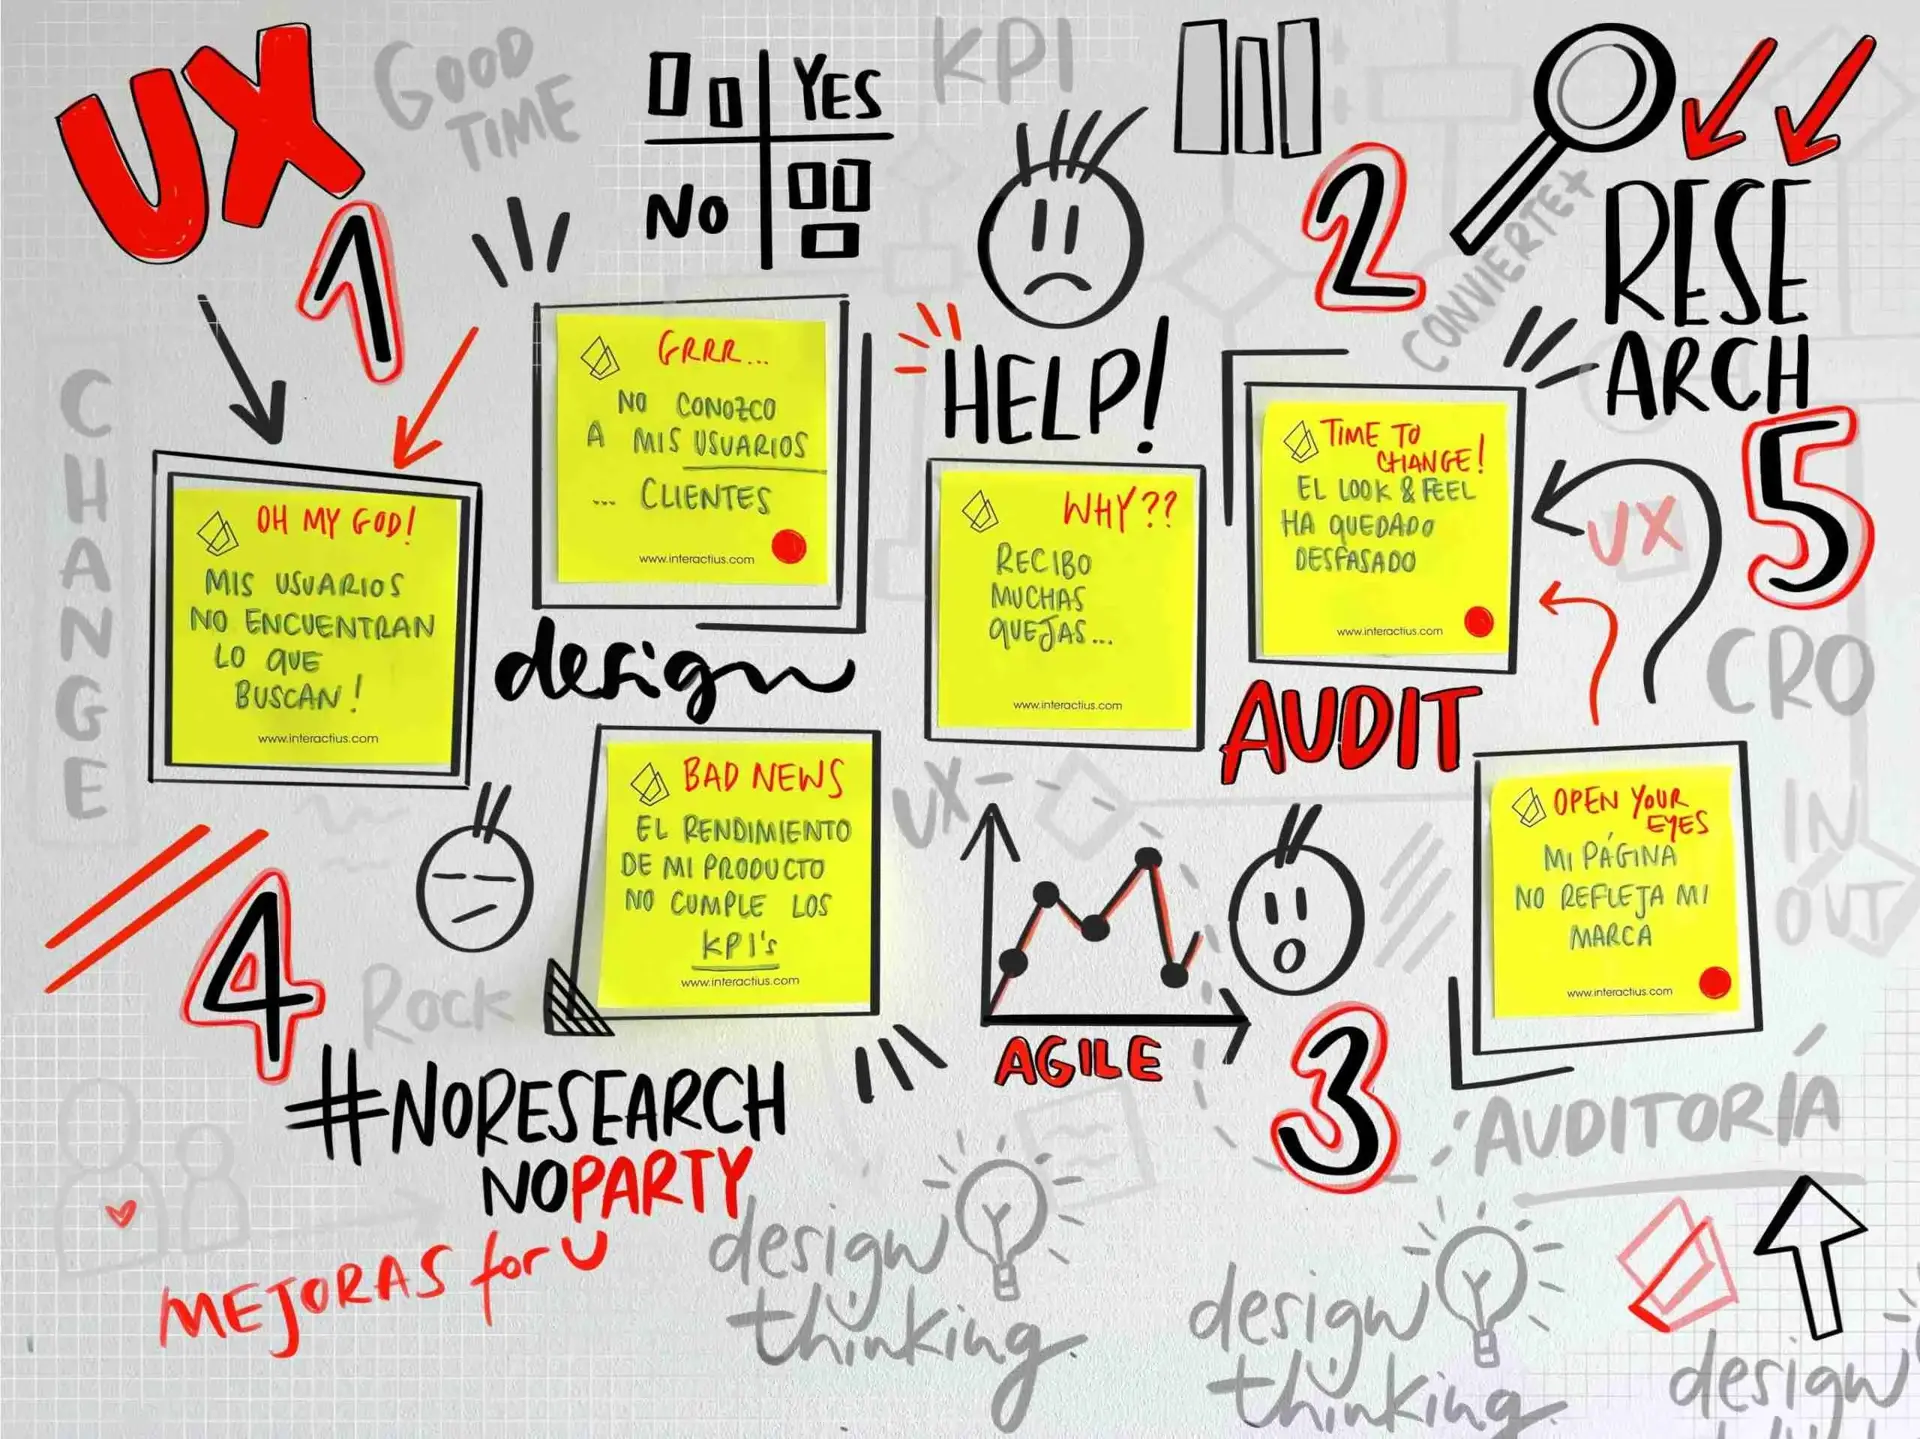 UX
GOOD
TIME
YES
NO
KPI
1
2
CONVIERTE+
RESE
ARCH
HELP!
CHANGE
GRRR...
NO CONOZCO
A MIS USUARIOS
... CLIENTES
www.interactius.com
OH MY GOD!
MIS USUARIOS
NO ENCUENTRAN
LO QUE
BUSCAN!
www.interactius.com
WHY??
RECIBO
MUCHAS
QUEJAS...
www.interactius.com
TIME TO
CHANGE!
EL LOOK & FEEL
HA QUEDADO
DESFASADO
www.interactius.com
UX
5
CRO
design
AUDIT
BAD NEWS
EL RENDIMIENTO
DE MI PRODUCTO
NO CUMPLE LOS
KPI's
www.interactius.com
UX
OPEN YOUR
EYES
MI PÁGINA
NO REFLEJA MI
MARCA
www.interactius.com
IN
OUT
4
ROCK
AGILE
3
#NORESEARCH
NOPARTY
MEJORAS for U
AUDITORÍA
design
thinking
design
thinking
design